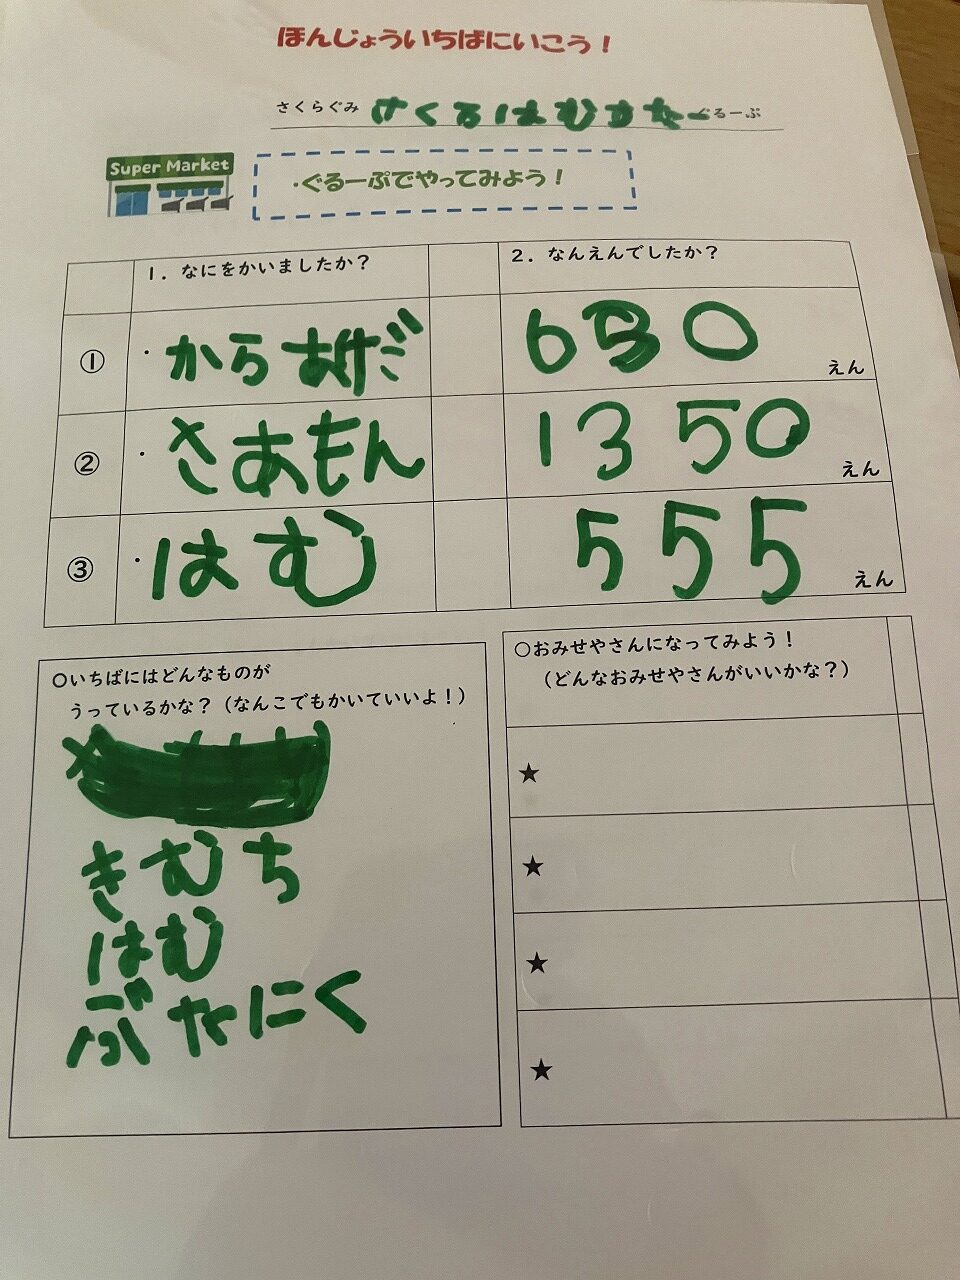 ほんじょういちばにいこう！
さくらぐみ さくるはむすたーぐるーぷ
Super Market
・ぐるーぷでやってみよう！
1. なにをかいましたか？
2. なんえんでしたか？
① ・からあげ 630 えん
② ・さあもん 1350 えん
③ ・はむ 555 えん
○いちばにはどんなものが
うっているかな？（なんこでもかいていいよ！）
きむち
はむ
ぶたにく
○おみせやさんになってみよう！
（どんなおみせやさんがいいかな？）
★
★
★
★